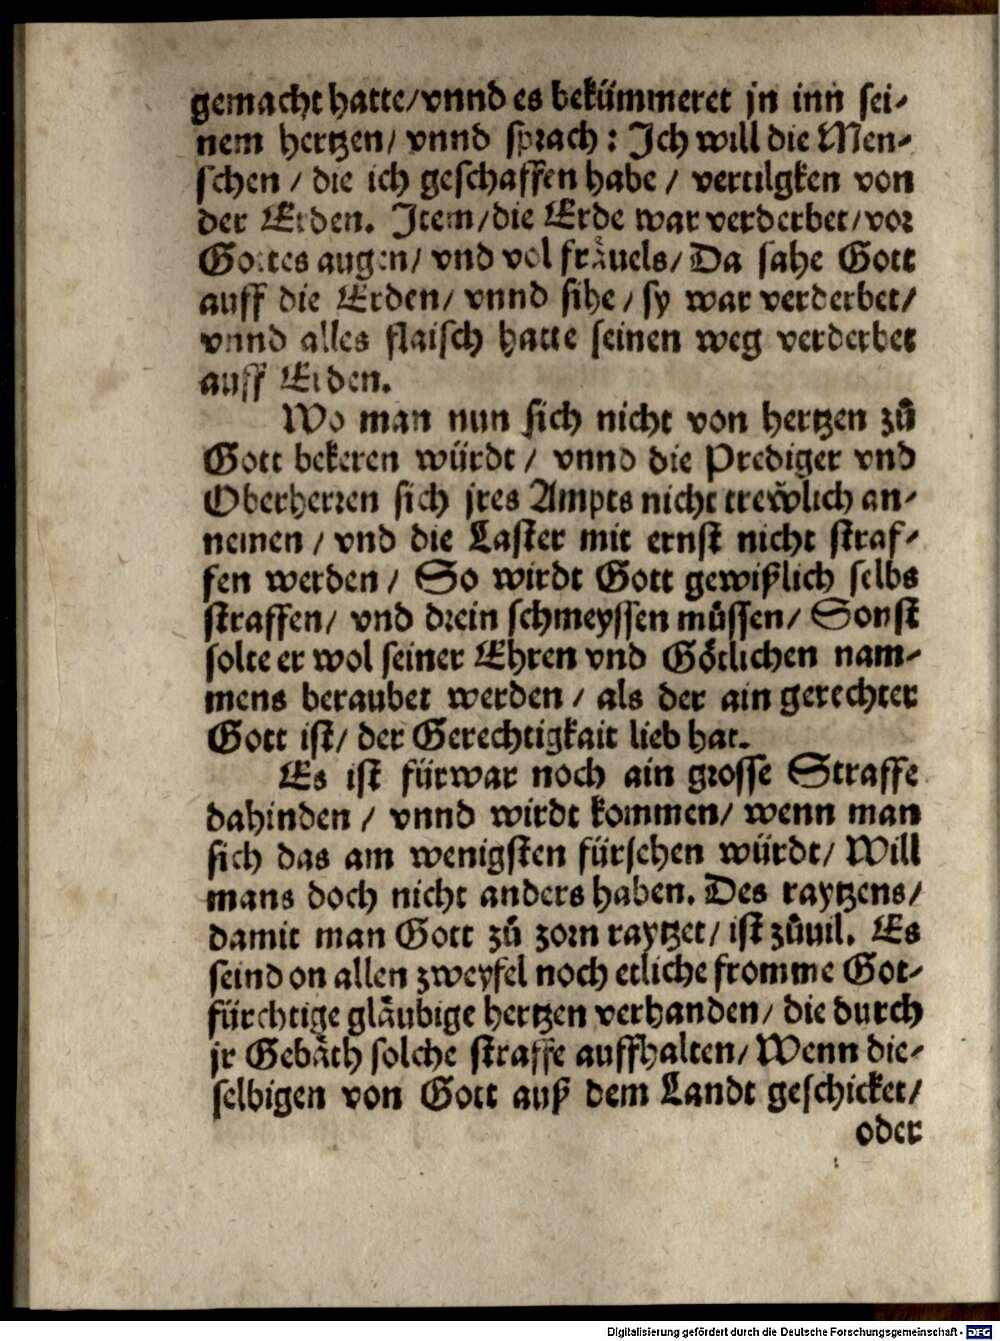 gemacht hatte/ vnnd es bekümmeret jn inn sei-
nem hertzen/ vnnd sprach: Ich will die Men-
schen / die ich geschaffen habe / vertilgken von
der Erden. Item/ die Erde war verderbet/ vor
Gottes augen/ vnd vol fräuels/ Da sahe Gott
auff die Erden/ vnnd sihe / sy war verderbet/
vnnd alles flaisch hatte seinen weg verderbet
auff Erden.
Wo man nun sich nicht von hertzen zů
Gott bekeren würdt / vnnd die Prediger vnd
Oberherren sich jres Ampts nicht trewlich an-
nemen / vnd die Laster mit ernst nicht straf-
fen werden / So wirdt Gott gewißlich selbs
straffen/ vnd drein schmeyssen můssen/ Sonst
solte er wol seiner Ehren vnd Götlichen nam-
mens beraubet werden / als der ain gerechter
Gott ist/ der Gerechtigkait lieb hat.
Es ist fürwar noch ain grosse Straffe
dahinden / vnnd wirdt kommen/ wenn man
sich das am wenigsten fürsehen würdt/ Will
mans doch nicht anders haben. Des raytzens/
damit man Gott zů zorn raytzet/ ist zůuil. Es
seind on allen zweyfel noch etliche fromme Got-
fürchtige gläubige hertzen verhanden/ die durch
jr Gebäth solche straffe auffhalten/ Wenn die-
selbigen von Gott auß dem Landt geschicket/
oder
Digitalisierung gefördert durch die Deutsche Forschungsgemeinschaft - DFG